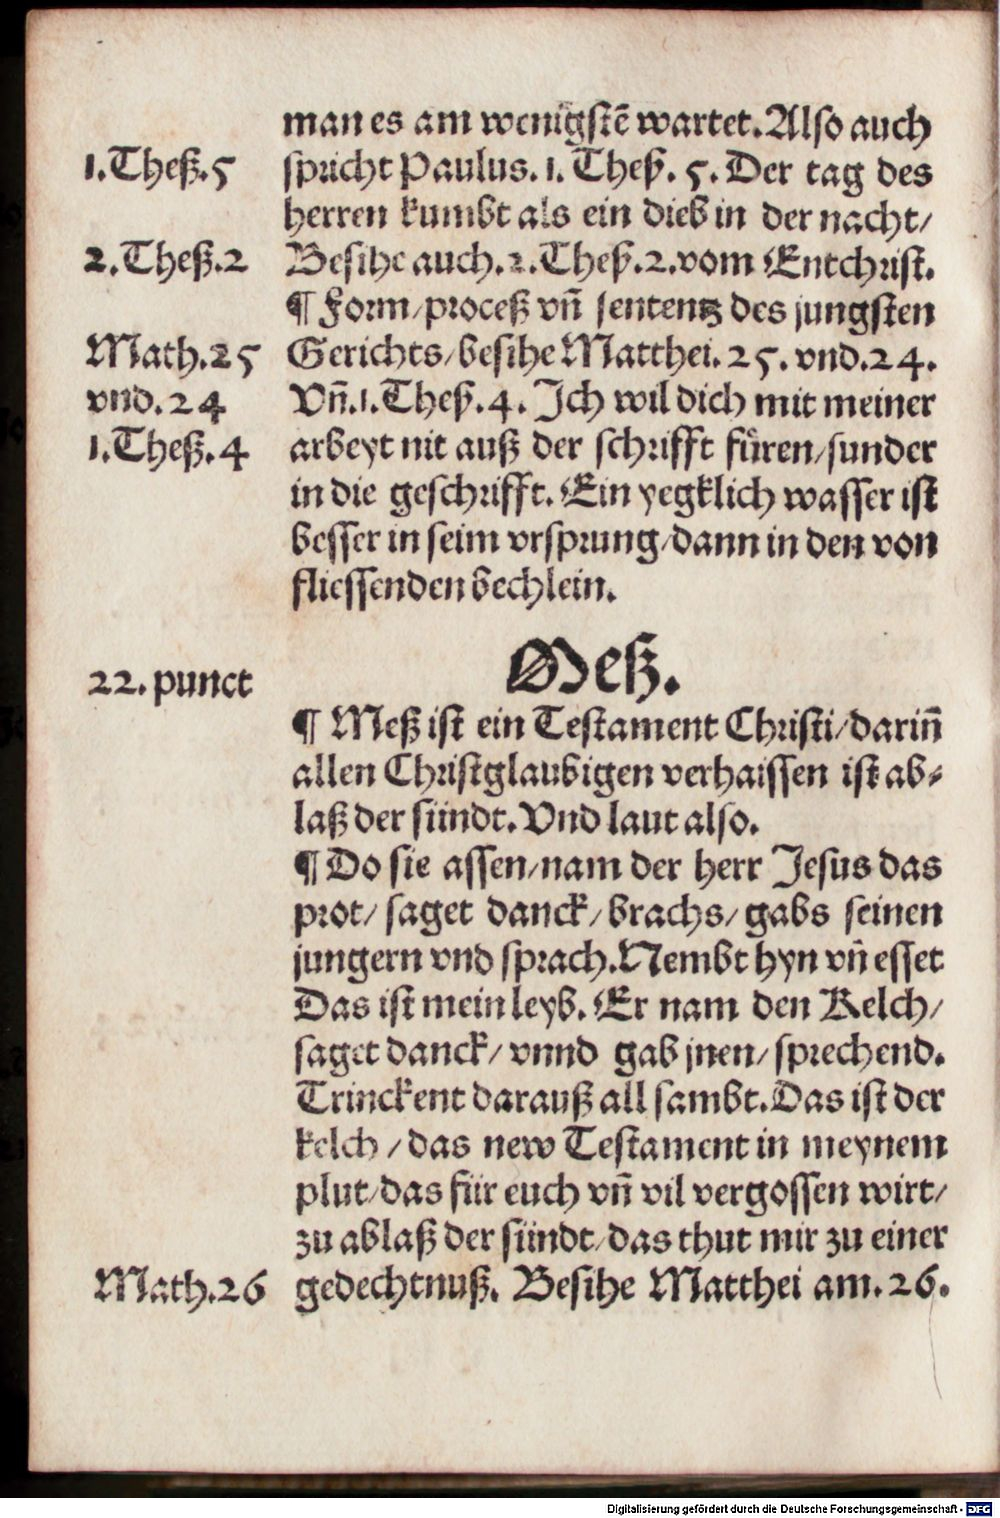 man es am wenigstē wartet. Also auch
1. Theß. 5 spricht Paulus. 1. Theß. 5. Der tag des
herren kumbt als ein dieb in der nacht/
2. Theß. 2 Besihe auch. 2. Theß. 2. vom Entchrist.
¶ Form/proceß vñ sententz des jungsten
Math. 25 Gerichts/besihe Matthei. 25. vnd. 24.
vnd. 24 Vñ. 1. Theß. 4. Ich wil dich mit meiner
1. Theß. 4 arbeyt nit auß der schrifft füren/sunder
in die geschrifft. Ein yegklich wasser ist
besser in seim vrsprung/dann in den von
fliessenden bechlein.
Meß.
22. punct
¶ Meß ist ein Testament Christi/dariñ
allen Christglaubigen verhaissen ist ab⸗
laß der sündt. Vnd laut also.
¶ Do sie assen/nam der herr Jesus das
prot/ saget danck/ brachs/ gabs seinen
jungern vnd sprach. Nembt hyn vñ esset
Das ist mein leyb. Er nam den Kelch/
saget danck/ vnnd gab jnen/ sprechend.
Trinckent darauß all sambt. Das ist der
kelch /das new Testament in meynem
plut/das für euch vñ vil vergossen wirt/
zu ablaß der sündt/das thut mir zu einer
Math. 26 gedechtnuß. Besihe Matthei am. 26.
Digitalisierung gefördert durch die Deutsche Forschungsgemeinschaft - DFG